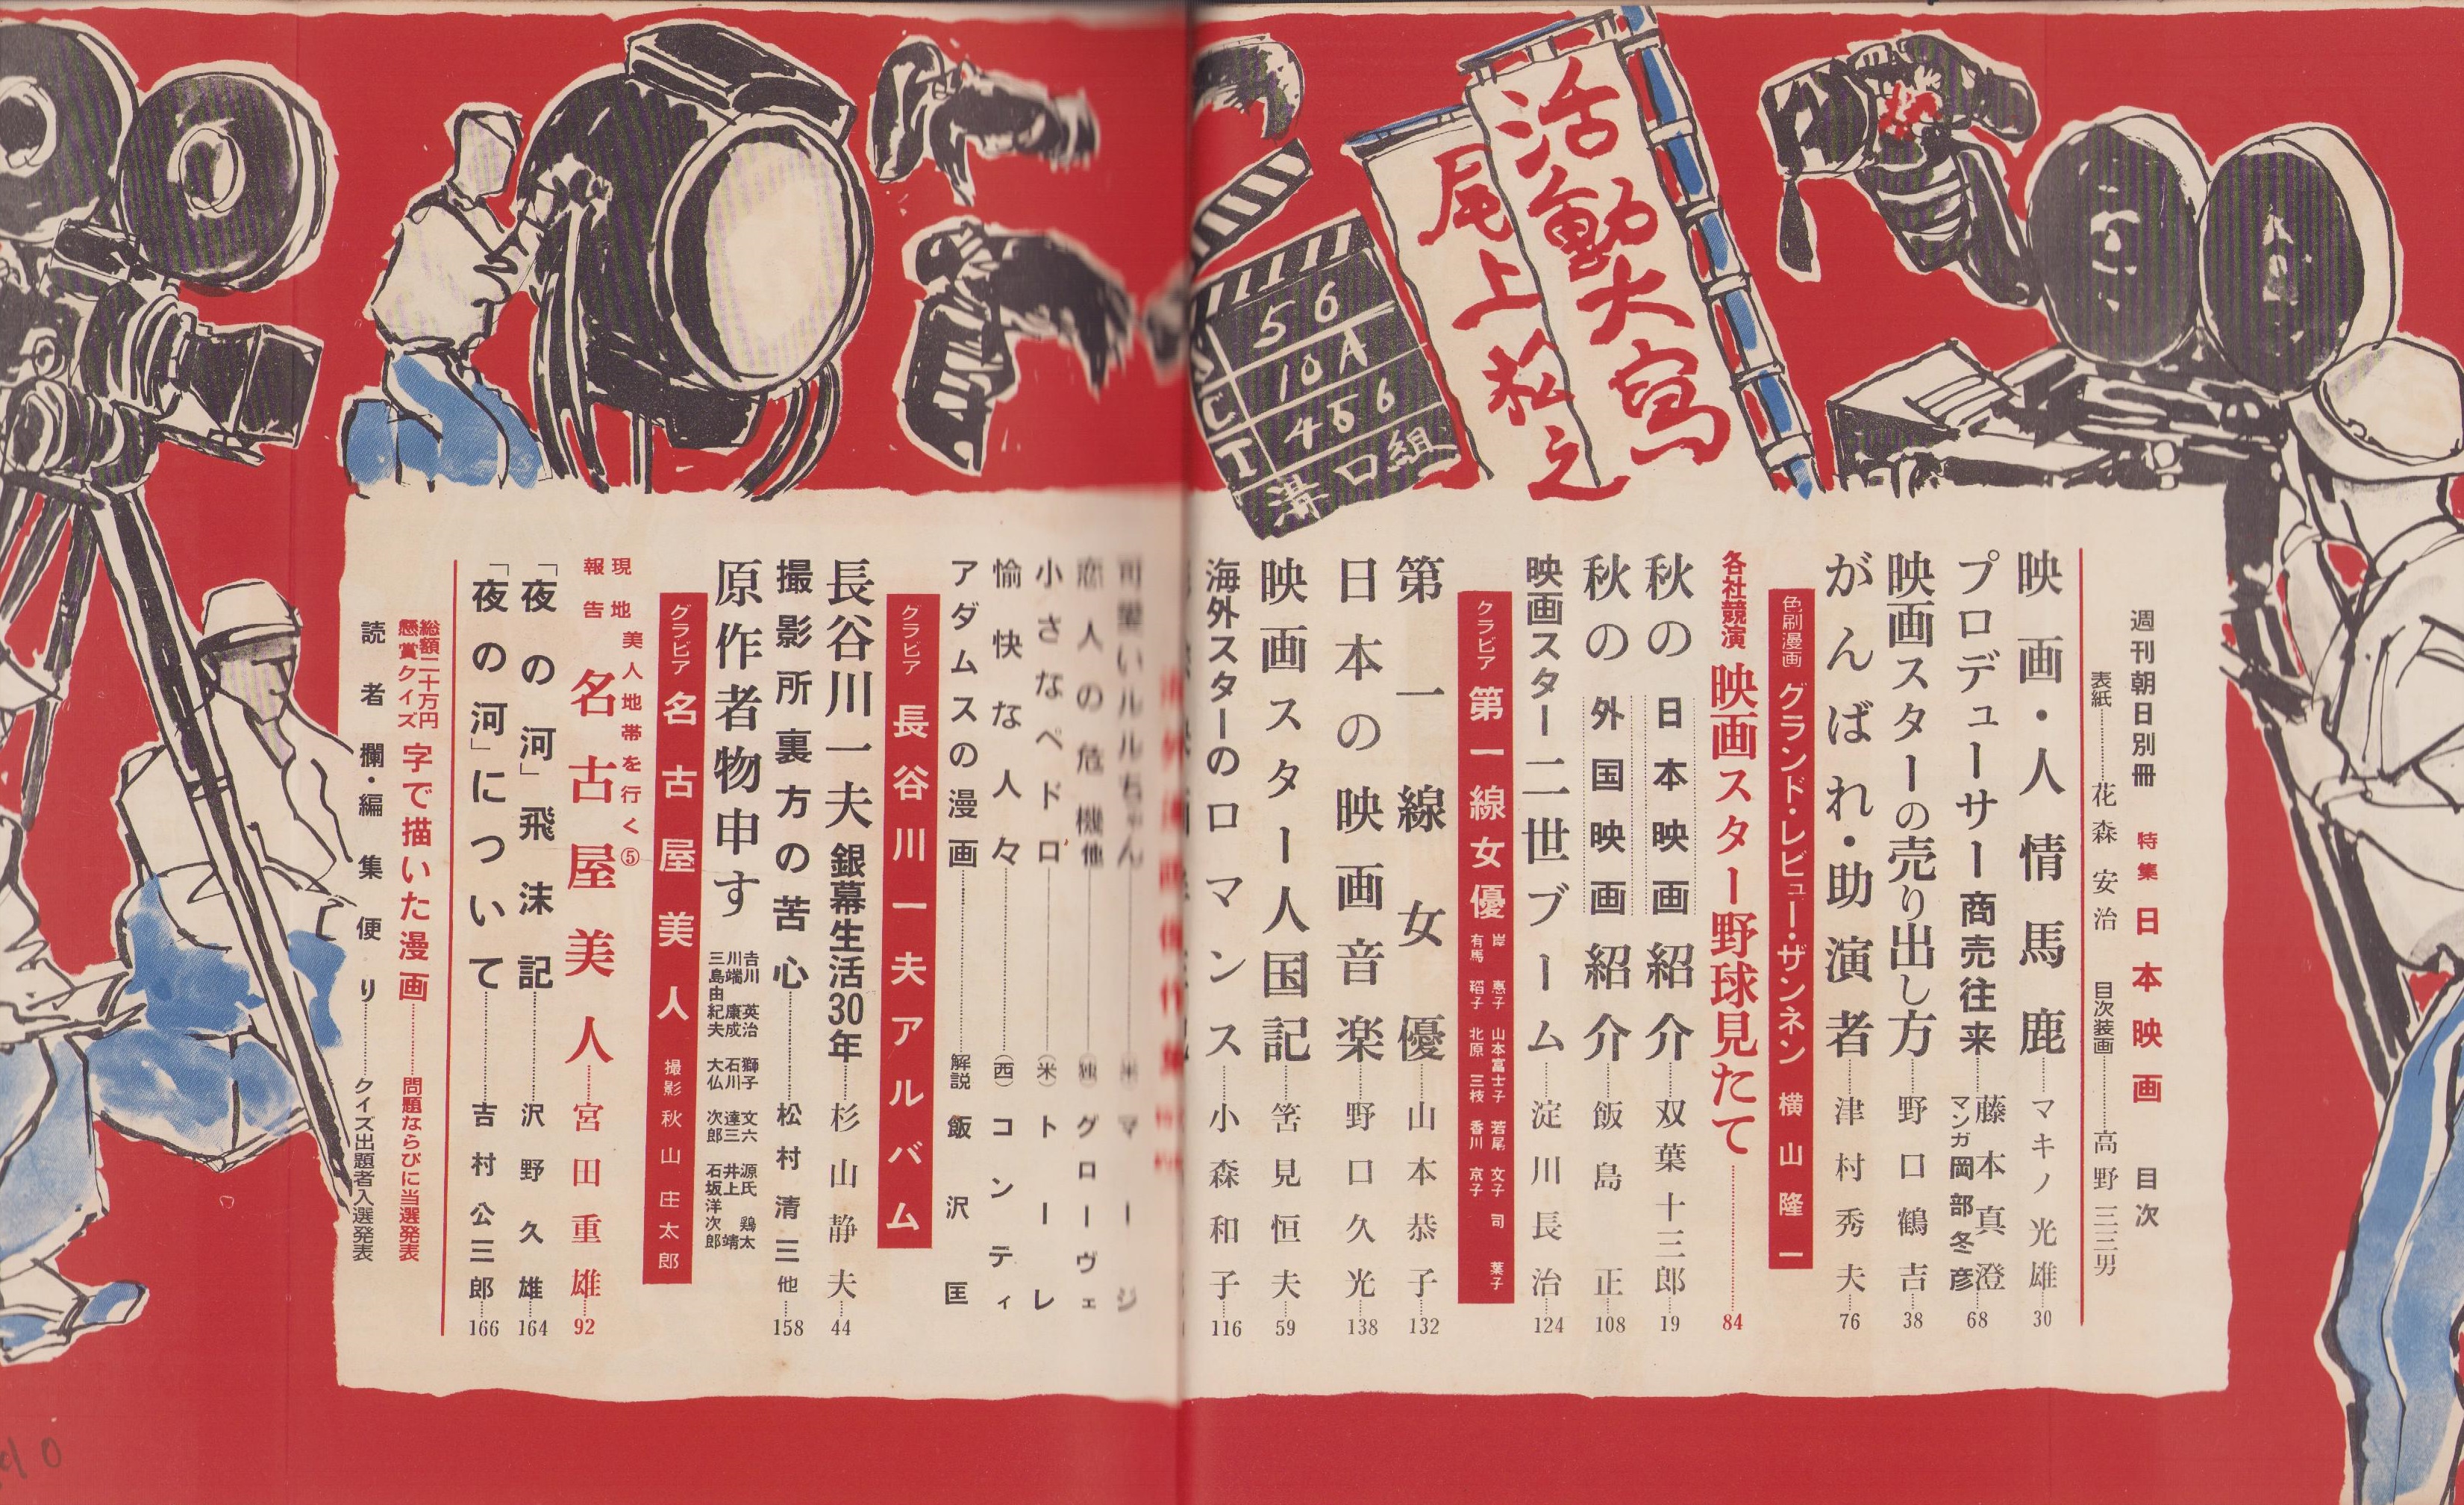 活動大寫
尾上松之
56
10A
456
溝口組
週刊朝日別冊 特集 日本映画 目次
表紙 花森安治 目次装画 高野三三男
映画・人情馬鹿 マキノ光雄 30
プロデューサー商売往来 藤本真澄 マンガ岡部冬彦 68
映画スターの売り出し方 野口鶴吉 38
がんばれ・助演者 津村秀夫 76
色刷漫画 グランド・レビュー・ザンネン 横山隆一
各社競演 映画スター野球見たて 84
秋の日本映画紹介 双葉十三郎 19
秋の外国映画紹介 飯島正 108
映画スター二世ブーム 淀川長治 124
グラビア 第一線女優 岸恵子 山本富士子 若尾文子 司葉子
有馬稲子 北原三枝 香川京子
第一線女優 山本恭子 132
日本の映画音楽 野口久光 138
映画スター人国記 筈見恒夫 59
海外スターのロマンス 小森和子 116
可愛いルルちゃん (米) マージ
恋人の危機他 (独) グローヴェ
小さなペドロ (米) トーレ
愉快な人々 (西) コンティ
アダムスの漫画 解説 飯沢匡
グラビア 長谷川一夫アルバム
長谷川一夫 銀幕生活30年 杉山静夫 44
撮影所裏方の苦心 松村清三他 158
原作者物申す 吉川英治 獅子文六 源氏鶏太
川端康成 石川達三 井上靖
三島由紀夫 大仏次郎 石坂洋次郎
グラビア 名古屋美人 撮影 秋山庄太郎
現地報告 美人地帯を行く⑤
名古屋美人 宮田重雄 92
「夜の河」飛沫記 沢野久雄 164
「夜の河」について 吉村公三郎 166
総額二十万円懸賞クイズ 字で描いた漫画 問題ならびに当選発表
読者欄・編集便り クイズ出題者入選発表